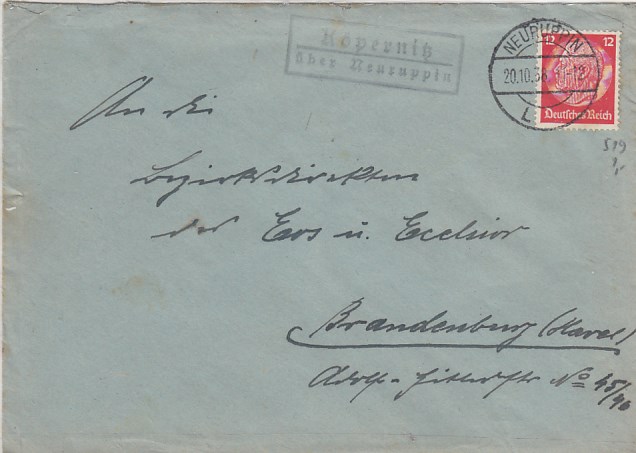 Köpernitz
über Neuruppin
NEURUPPIN
20.10.38 11-12
L
12 12
Deutsches Reich
519
1,-
An die
Bezirksdirektion
der Eos u. Excelsior
Brandenburg (Havel)
Adolf-Hitlerstr No 45/
46